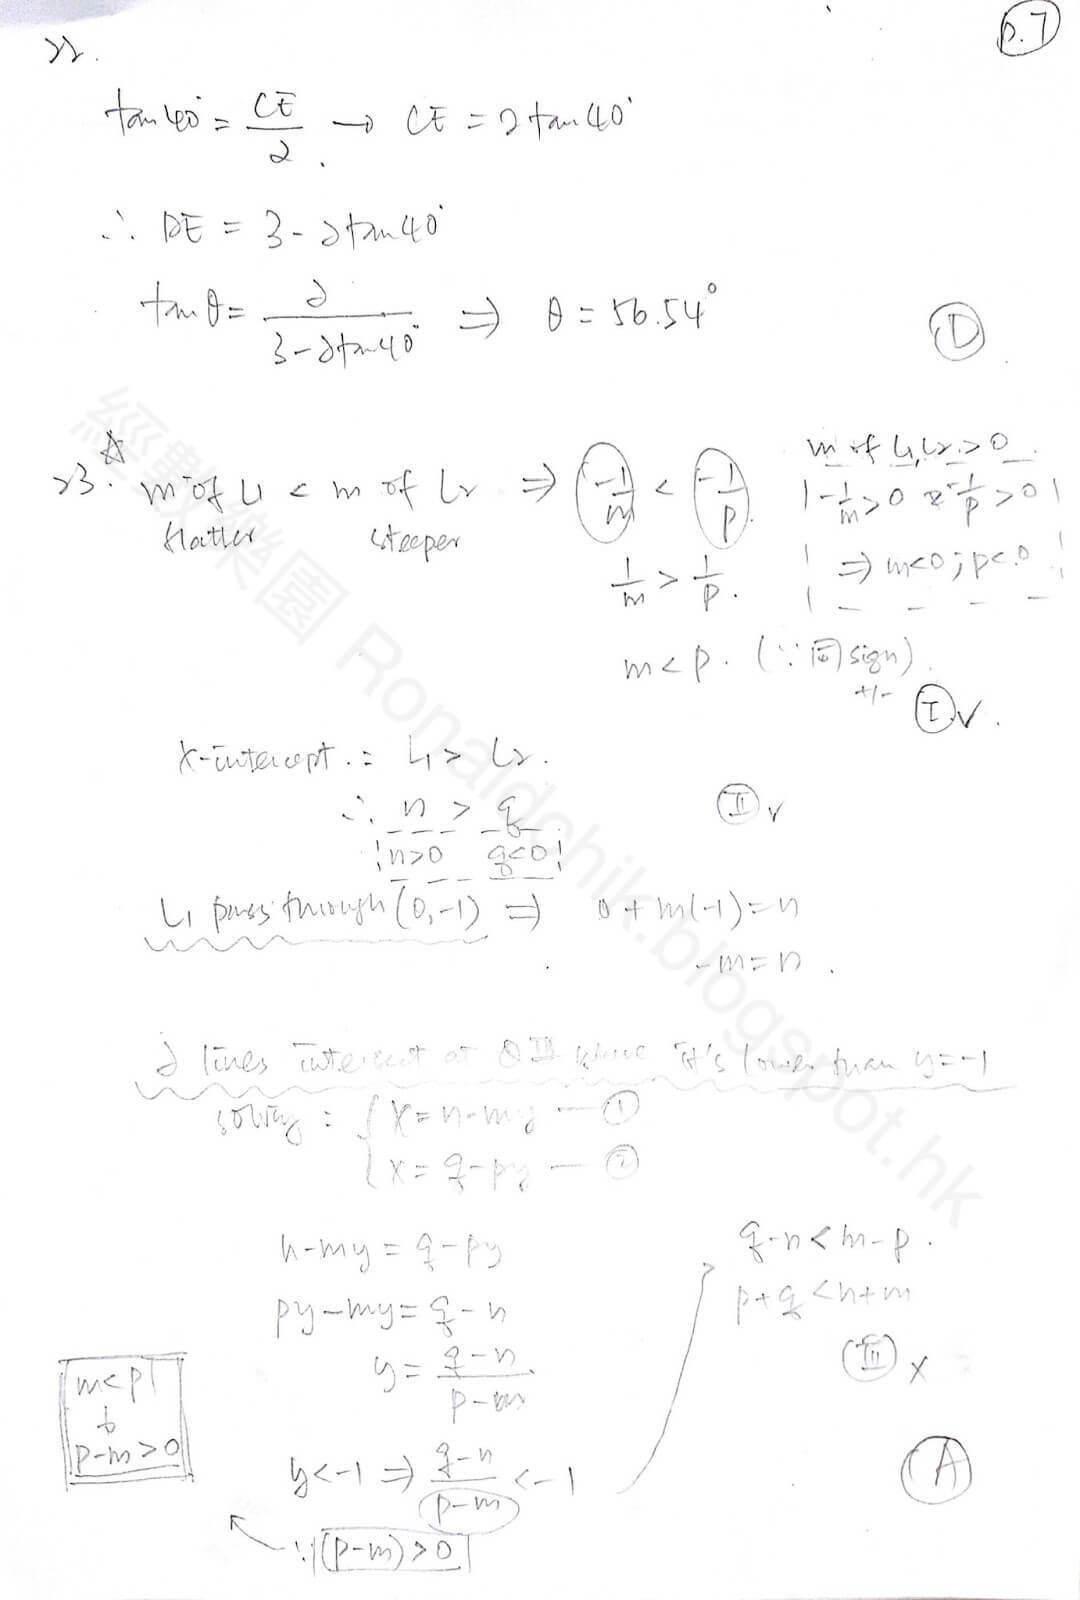 p.7
22.
tan40° = CE/2 → CE = 2tan40°
∴ DE = 3-2tan40°
tanθ = 2/(3-2tan40°) ⇒ θ = 56.54°
D
23. ☆
m of L1 < m of L2 ⇒ -1/m < -1/p
flatter steeper
1/m > 1/p.
m < p. (∵ 同 sign).
+/-
I ✓.
m of L1, L2 > 0
-1/m > 0 & -1/p > 0
⇒ m<0 ; p<0
x-intercept : L1 > L2.
∴ n > q
n>0 q<0
II ✓
L1 pass through (0,-1) ⇒ 0+m(-1)=n
-m=n.
2 lines intersect at QIII where it's lower than y=-1
solving : { x=n-my —①
x=q-py —②
n-my=q-py
py-my=q-n
y = (q-n)/(p-m)
y<-1 ⇒ (q-n)/(p-m) < -1
∵ (p-m)>0
m<p
↓
p-m>0
q-n<m-p.
p+q<n+m
III ×
A
經數樂園 Ronaldchik.blogspot.hk